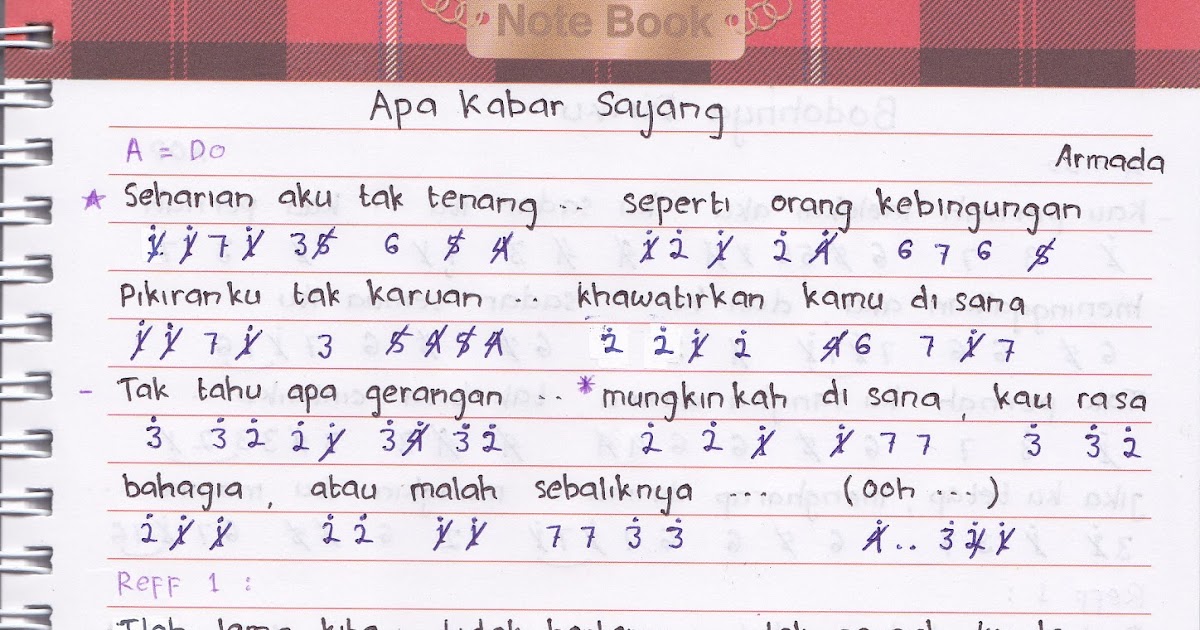 Note Book
Apa Kabar Sayang
A = Do
Armada
★ Seharian aku tak tenang ... seperti orang kebingungan
1̸̇ 1̸̇ 7 1̸̇ 3 5̸ 6 5̸ 4̸ 1̸̇ 2̇ 1̸̇ 2̇ 4̸̇ 6 7 6 5̸
Pikiranku tak karuan ... khawatirkan kamu di sana
1̸̇ 1̸̇ 7 1̸̇ 3 5̸ 4̸ 5̸ 4̸ 2̇ 2̇ 1̸̇ 2̇ 4̸ 6 7 1̸̇ 7
- Tak tahu apa gerangan ... *mungkinkah di sana, kau rasa
3̇ 3̇ 2̇ 2̇ 1̸̇ 3̇ 4̸̇ 3̇ 2̇ 2̇ 2̇ 1̸̇ 1̸̇ 7 7 3̇ 3̇ 2̇
bahagia, atau malah sebaliknya .... (ooh ...)
2̇ 1̸̇ 1̸̇ 2̇ 2̇ 1̸̇ 1̸̇ 7 7 3̇ 3̇ 4̸̇ .. 3̇ 2̸̇ 1̸̇
Reff 1 :
Tlah lama kita tidak